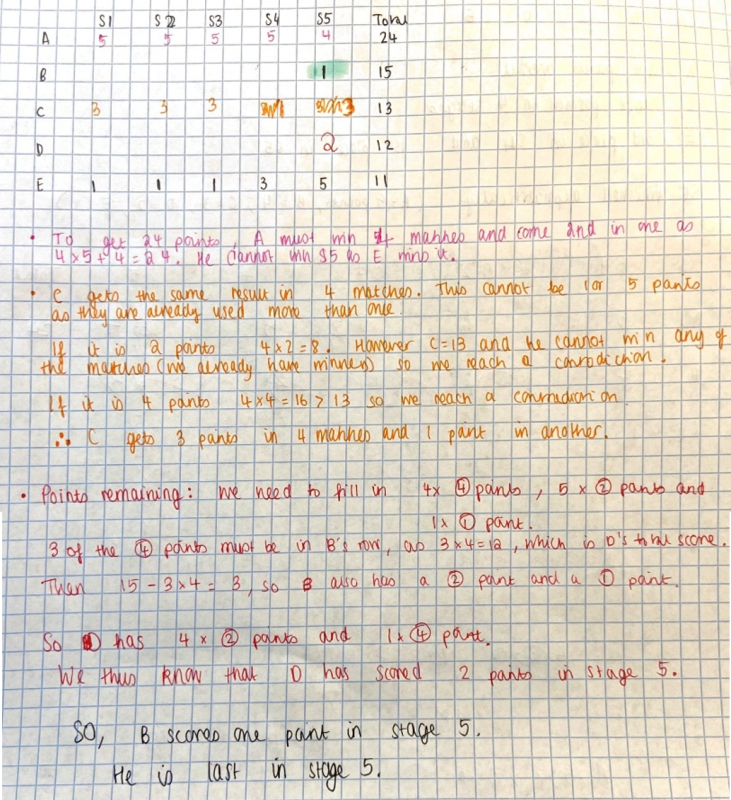 S1 S2 S3 S4 S5 Total
A 5 5 5 5 4 24
B 1 15
C 3 3 3 3 13
D 2 12
E 1 1 1 3 5 11
• To get 24 points, A must win 4 matches and come 2nd in one as
4×5+4=24. He cannot win S5 as E wins it.
• C gets the same result in 4 matches. This cannot be 1 or 5 points
as they are already used more than one.
If it is 2 points 4×2=8. However C=13 and he cannot win any of
the matches (we already have winners) so we reach a contradiction.
If it is 4 points 4×4=16>13 so we reach a contradiction.
∴ C gets 3 points in 4 matches and 1 point in another.
• Points remaining: we need to fill in 4x ④ points, 5 x ② points and
1x ① point.
3 of the ④ points must be in B's row, as 3×4=12, which is D's total score.
Then 15-3×4=3, so B also has a ② point and a ① point.
So D has 4 x ② points and 1x ④ point.
We thus know that D has scored 2 points in stage 5.
SO, B scores one point in stage 5.
He is last in stage 5.